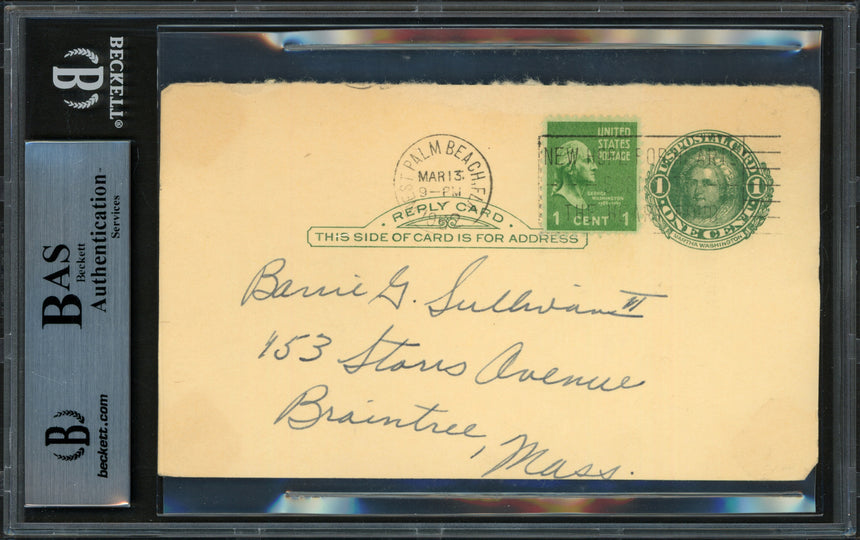 BECKETT®
B
BAS
Beckett
Authentication
Services
B
beckett.com
PALM BEACH, FLA
MAR 13
9-PM
REPLY CARD
THIS SIDE OF CARD IS FOR ADDRESS
UNITED
STATES
POSTAGE
GEORGE
WASHINGTON
1 CENT 1
U.S. POSTAL CARD
1 1
ONE CENT
MARTHA WASHINGTON
NEW
Barrie G. Sullivan II
153 Storrs Avenue
Braintree, Mass.